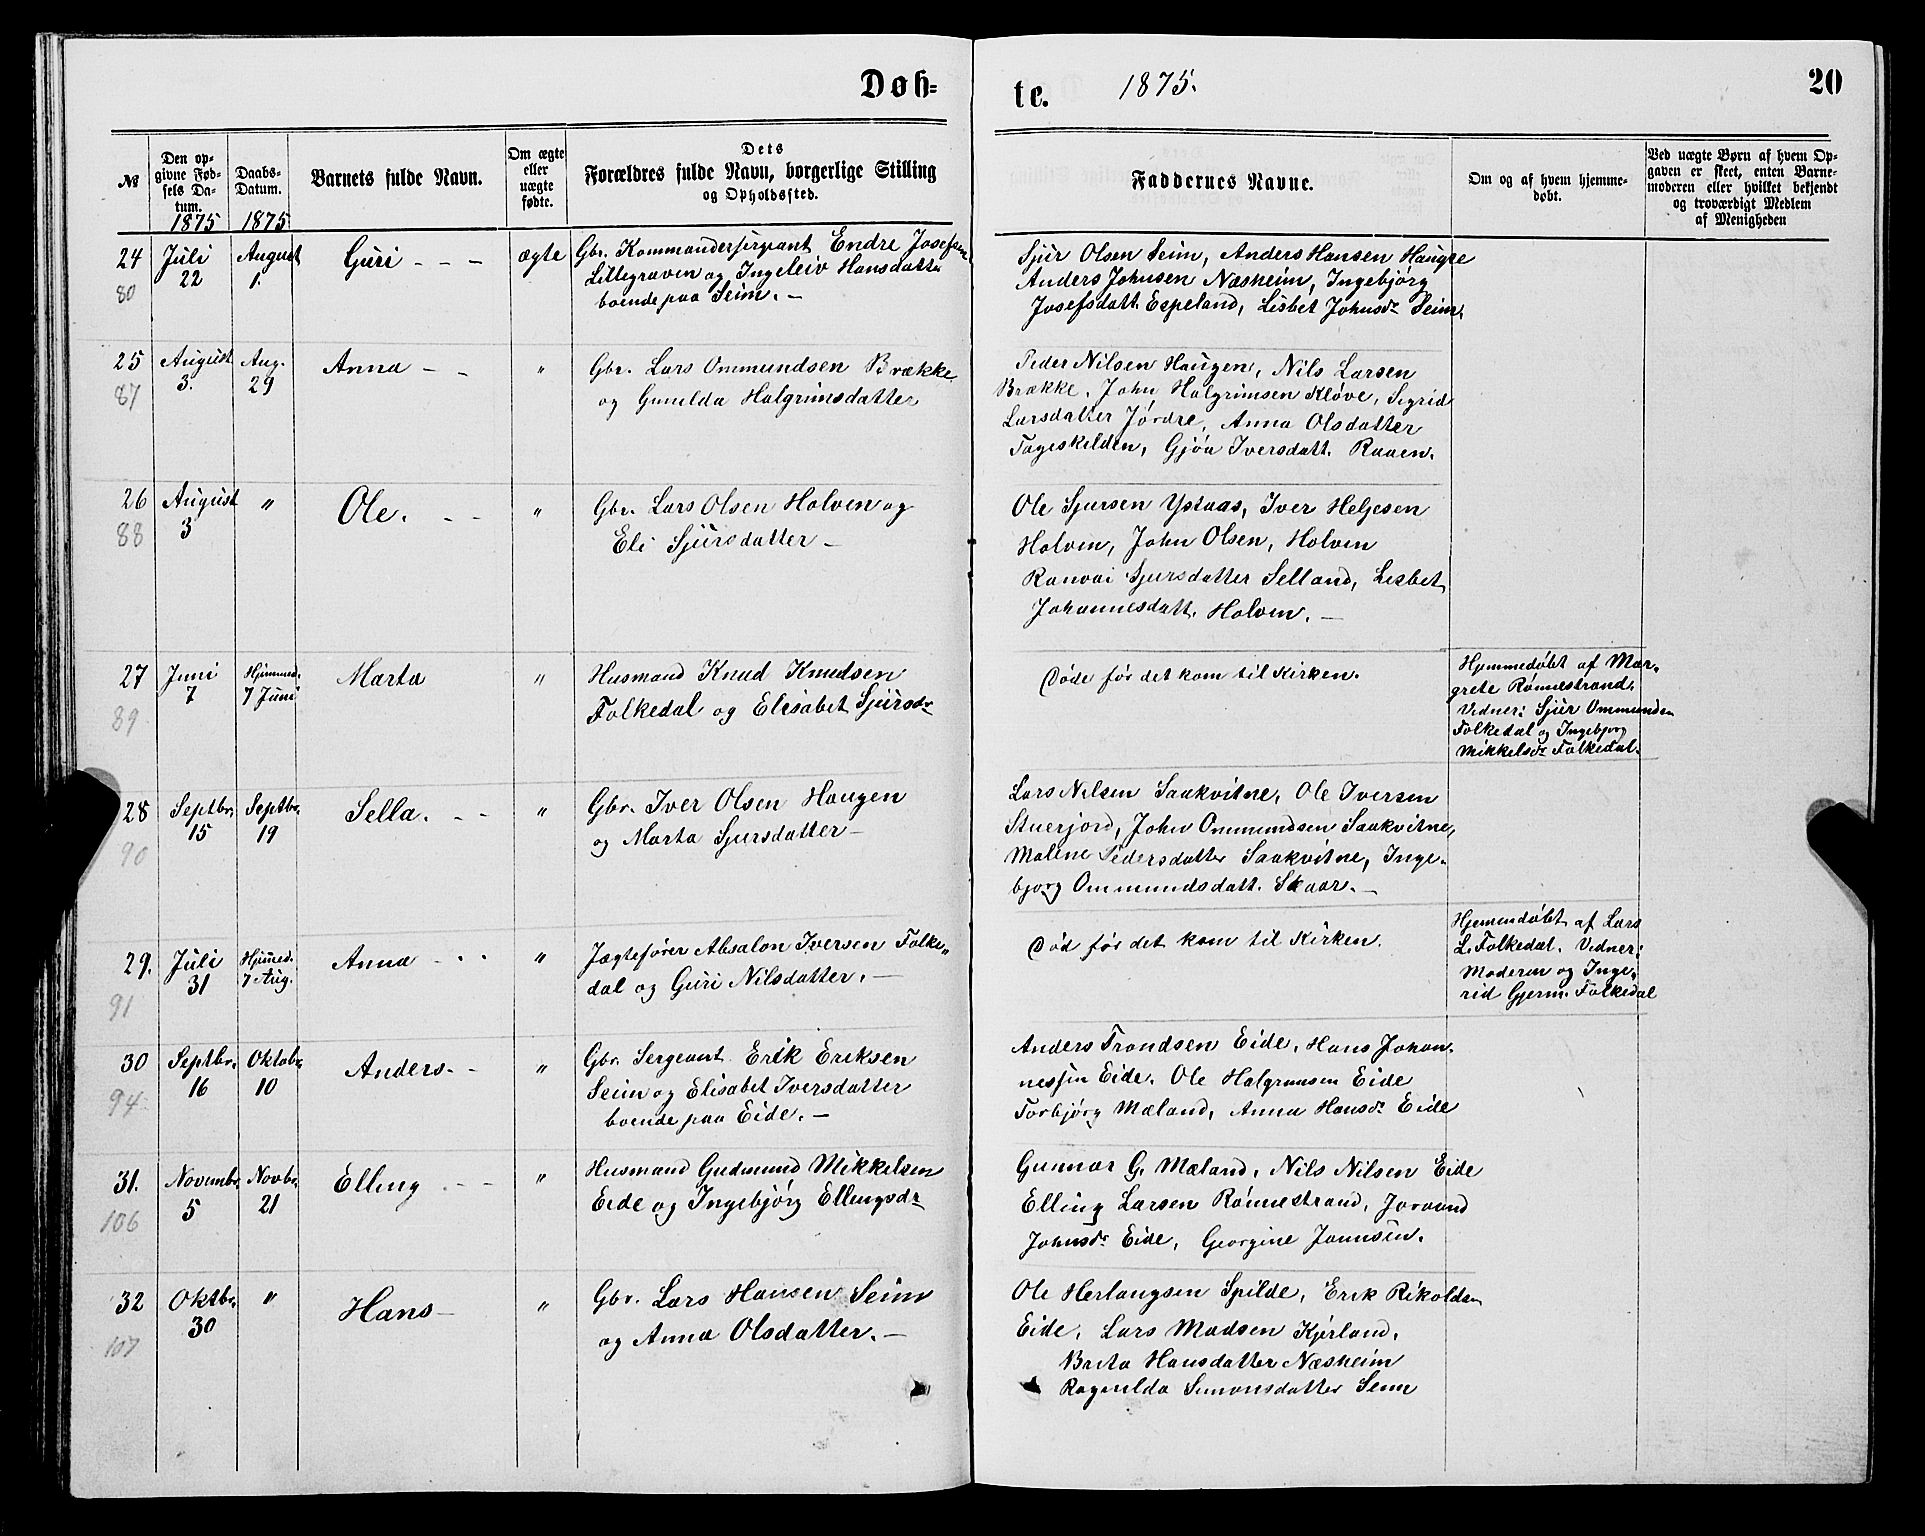 Døb=
te. 1875. 20
№ Den opgivne Fødsels Datum. 1875 Daabs-Datum. 1875 Barnets fulde Navn. Om ægte eller uægte fødte. Dets Forældres fulde Navn, borgerlige Stilling og Opholdssted.
Faddernes Navne. Om og af hvem hjemmedøbt. Ved uægte Børn af hvem Opgaven er skeet, enten Barnemoderen eller hvilket bekjendt og troværdigt Medlem af Menigheden
24 Juli August Guri - - - ægte Gbr. Kommandersergeant Endre Josefsen
80 22 1. Lillegraven og Ingeleiv Hansdatter
boende paa Seim. -
Sjur Olsen Seim, Anders Hansen Haugse
Anders Johnsen Næsheim, Ingebjørg
Josefsdatt. Espeland, Lisbet Johnsdr Seim.
25 August Aug. Anna - - " Gbr. Lars Ommundsen Brække
87 3. 29 og Gunilda Halgrimsdatter
Peder Nilsen Haugen, Nils Larsen
Brække, John Halgrimsen Kløve, Sigrid
Larsdatter Jørdre, Anna Olsdatter
Tageskilden, Gjøa Iversdatt. Raaen.
26 August " Ole. - - " Gbr. Lars Olsen Holven og
88 3 Eli Sjursdatter -
Ole Sjursen Ystaas, Iver Heljesen
Holven, John Olsen, Holven
Ranvai Sjursdatter Selland, Lisbet
Johannesdatt. Holven. -
27 Juni Hjemmed. Marta " Husmand Knud Knudsen
89 7 7 Juni Folkedal og Elisabet Sjursdr
Døde før det kom til Kirken.
Hjemmedøbt af Mar-
grete Rønnestrand.
Vidner: Sjur Ommundsen
Folkedal og Ingebjørg
Mikkelsdr Folkedal.
28 Septbr. Septbr. Sella. - - " Gbr. Iver Olsen Haugen
90 15 19 og Marta Sjursdatter -
Lars Nilsen Saakvitne, Ole Iversen
Stuerjord, John Ommundsen Saakvitne,
Malene Pedersdatter Saakvitne, Inge-
bjorg Ommundsdatt. Skaar. -
29. Juli Hjemmed. Anna - - - " Jægtefører Absalon Iversen Folke-
91 31 7 Aug. dal og Guri Nilsdatter. -
Død før det kom til Kirken.
Hjemmedøbt af Lars
L. Folkedal. Vidner:
Moderen og Inge-
rid Gjerm. Folkedal
30 Septbr. Oktobr. Anders. - " Gbr. Sergeant Erik Eriksen
94 16 10 Seim og Elisabet Iversdatter
boende paa Eide. -
Anders Trondsen Eide, Hans Johan-
nessen Eide. Ole Halgrimsen Eide
Torbjørg Mæland, Anna Hansdr Eide
31. Novembr. Novbr. Elling - - " Husmand Gudmund Mikkelsen
106 5 21 Eide og Ingebjørg Ellingsdr
Gunnar G. Mæland, Nils Nilsen Eide
Elling Larsen Rønnestrand, Joraand
Johnsdr Eide, Georgine Jonnsen.
32 Oktbr. " Hans - " Gbr. Lars Hansen Seim
107 30 og Anna Olsdatter. -
Ole Herlaugsen Spilde, Erik Rikoldsen
Eide, Lars Madsen Kjerland,
Brita Hansdatter Næsheim
Ragnilda Simonsdatter Seim